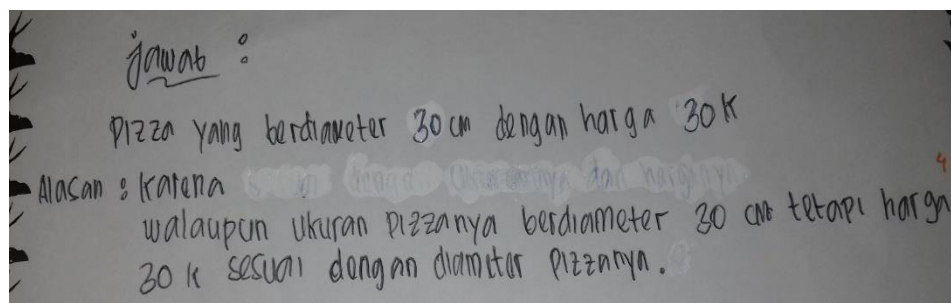 jawab :
Pizza yang berdiameter 30 cm dengan harga 30 K
4
Alasan : karena
walaupun ukuran Pizzanya berdiameter 30 cm tetapi harga
30 k sesuai dengan diameter Pizzanya.